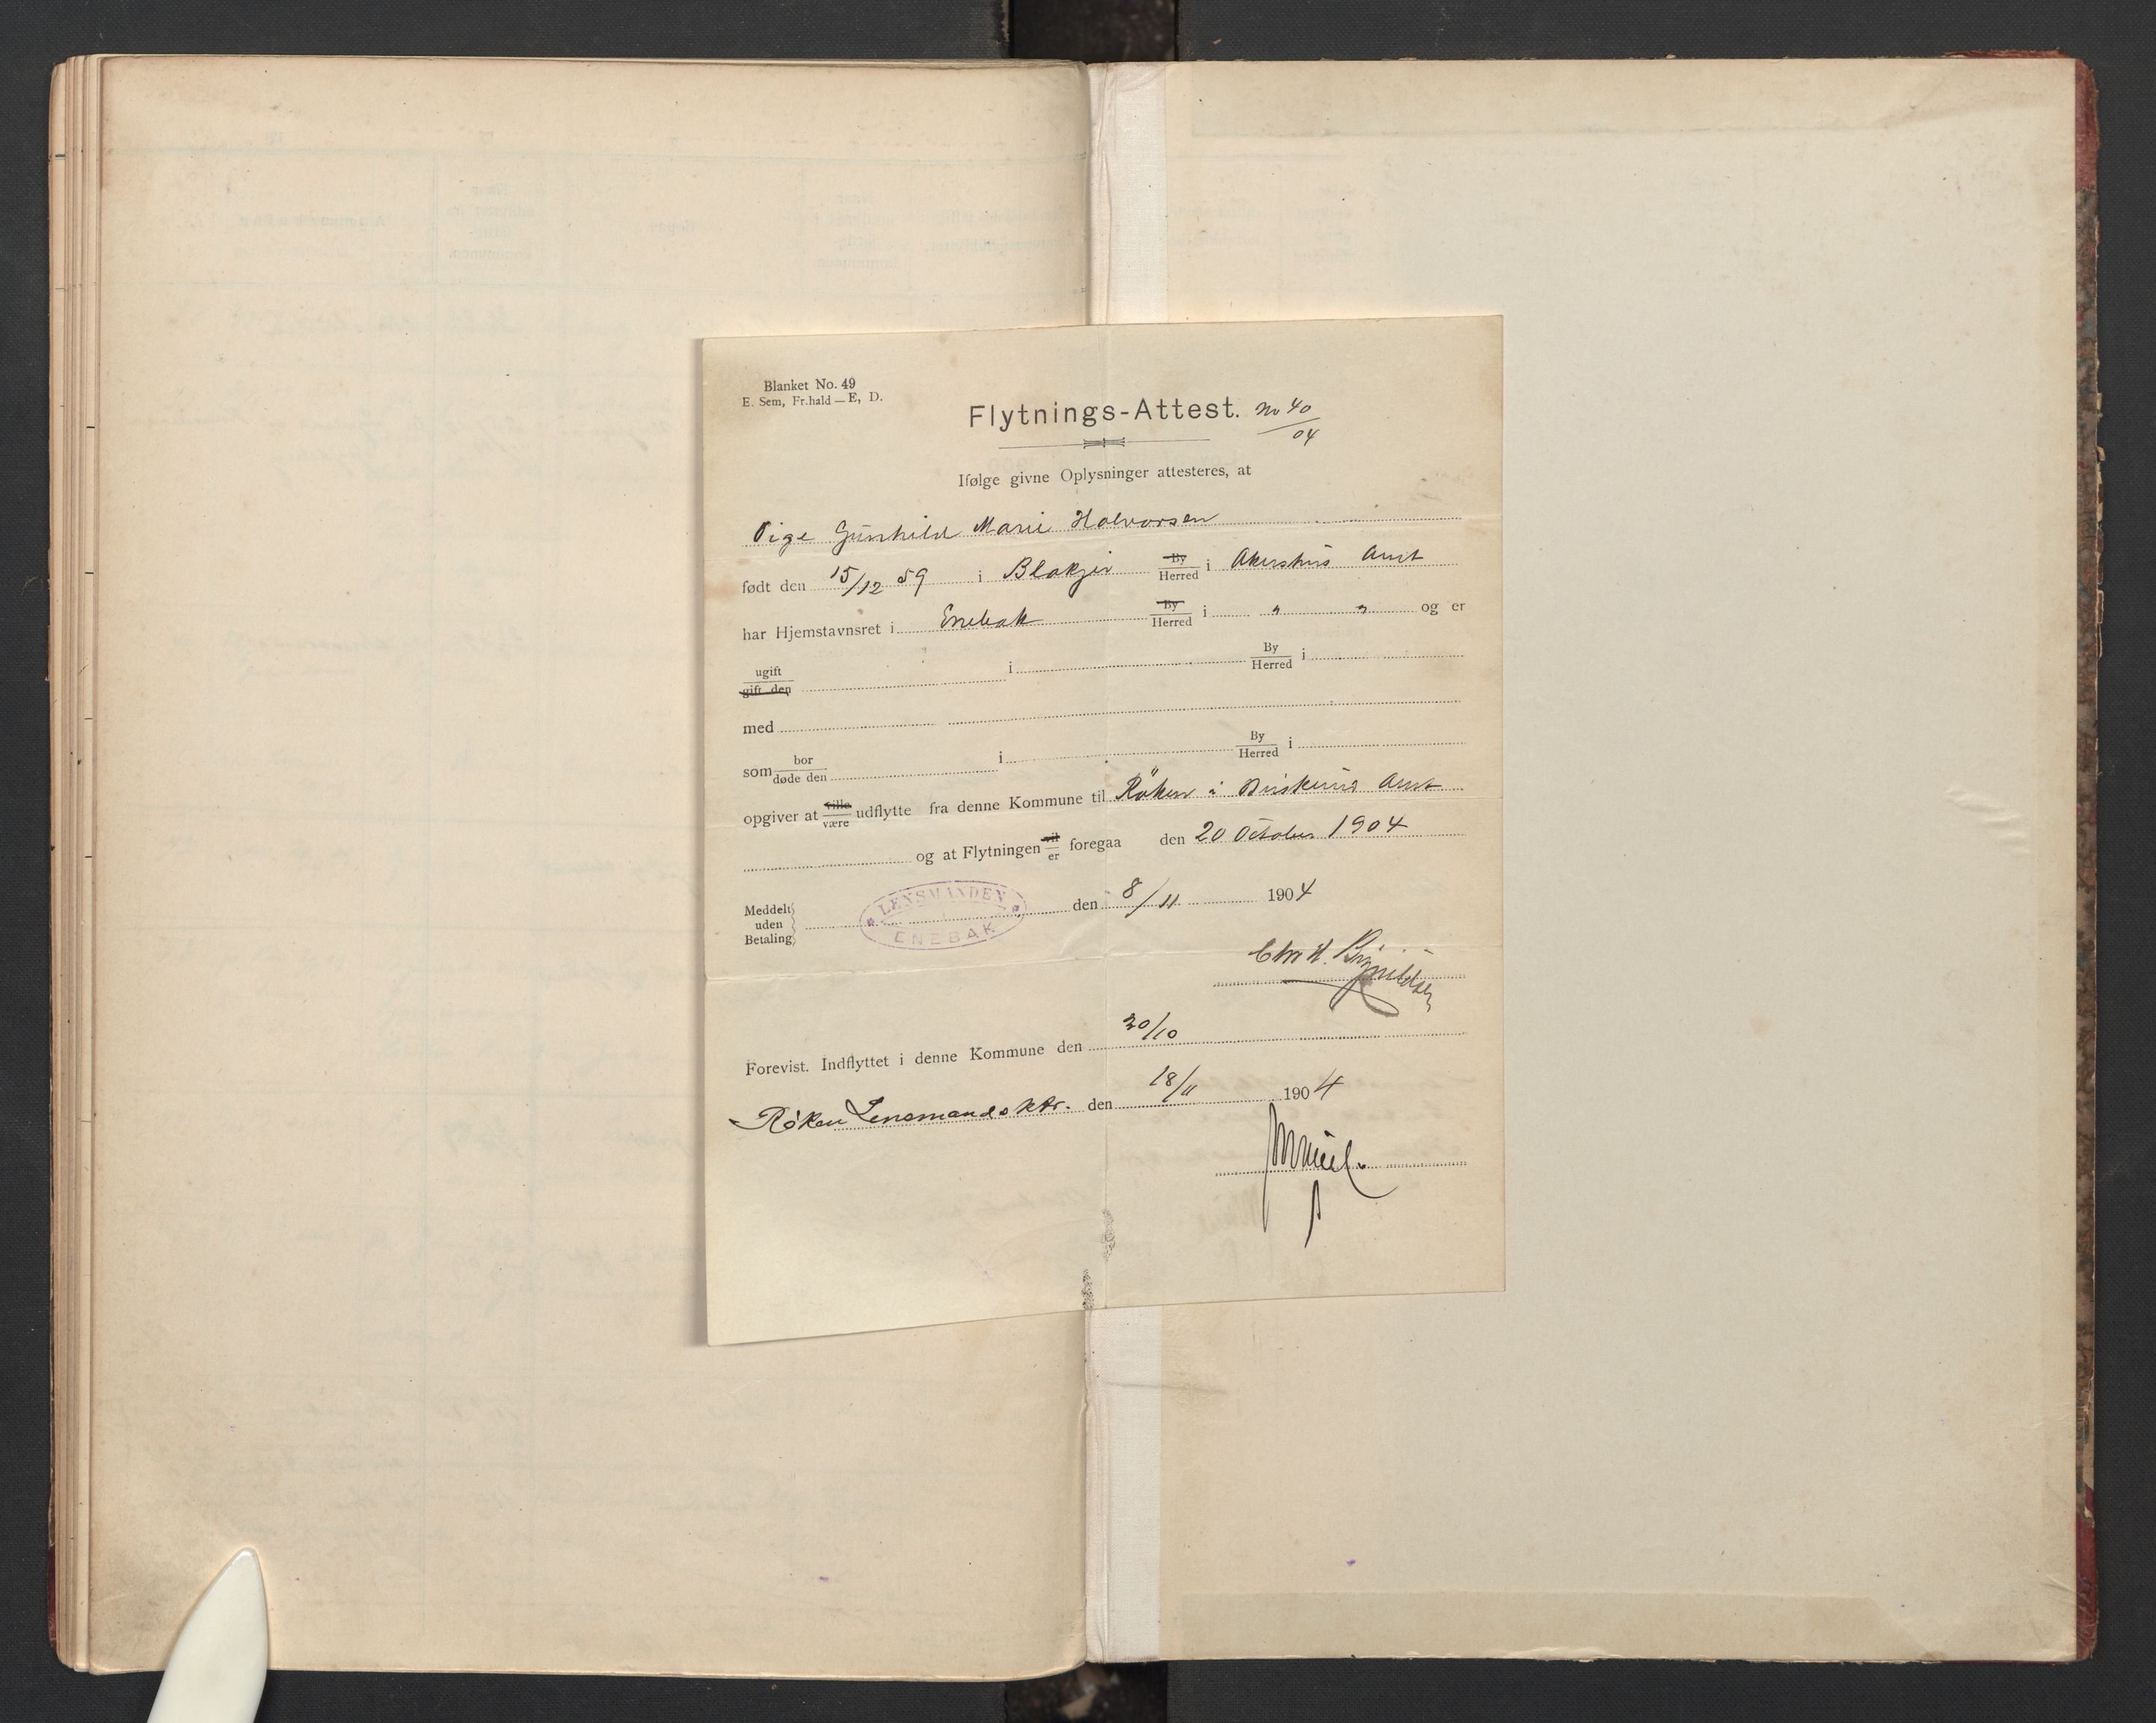 Blanket No. 49
E. Sem, Fr.hald — E, D.
Flytnings-Attest. No 40/04
Ifølge givne Oplysninger attesteres, at
Pige Gunhild Marie Halvorsen
født den 15/12 59 i Blakjer By/Herred i Akershus Amt
har Hjemstavnsret i Enebak By/Herred i " " og er
ugift/gift den i By/Herred i
med
som bor/døde den i By/Herred i
opgiver at ville/være udflytte fra denne Kommune til Röken i Buskerud Amt
og at Flytningen vil/er foregaa den 20 October 1904
Meddelt uden Betaling
LENSMANDEN ENEBAK
den 8/11 1904
Forevist. Indflyttet i denne Kommune den 20/10
Røken Lensmandsktr. den 18/11 1904